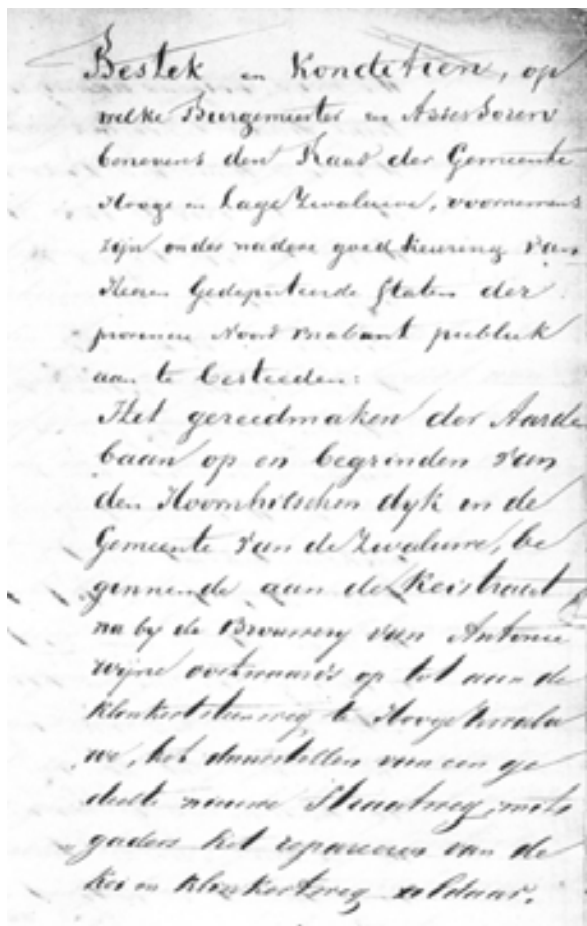 Bestek en Konditien, op
welke Burgemeester en Assessoren
benevens den Raad der Gemeente
Hooge en Lage Zwaluwe, voornemens
zijn onder nadere goedkeuring van
Heeren Gedeputeerde Staten der
provincie Noord Brabant publiek
aan te besteeden:
Het gereedmaken der Aarde
baan op en begrinden van
den Hoornhilschen dyk in de
Gemeente van de Zwaluwe, be
ginnende aan de Keistraat
na by de Brouwery van Antonie
Wijne oostwaards op tot aan de
Klinkertsteenweg te Hooge Zwalu
we, het daarstellen van een ge
deelte nieuwe Straatweg, mits
gaders het repareeren van de
Kei en Klinkertweg aldaar.